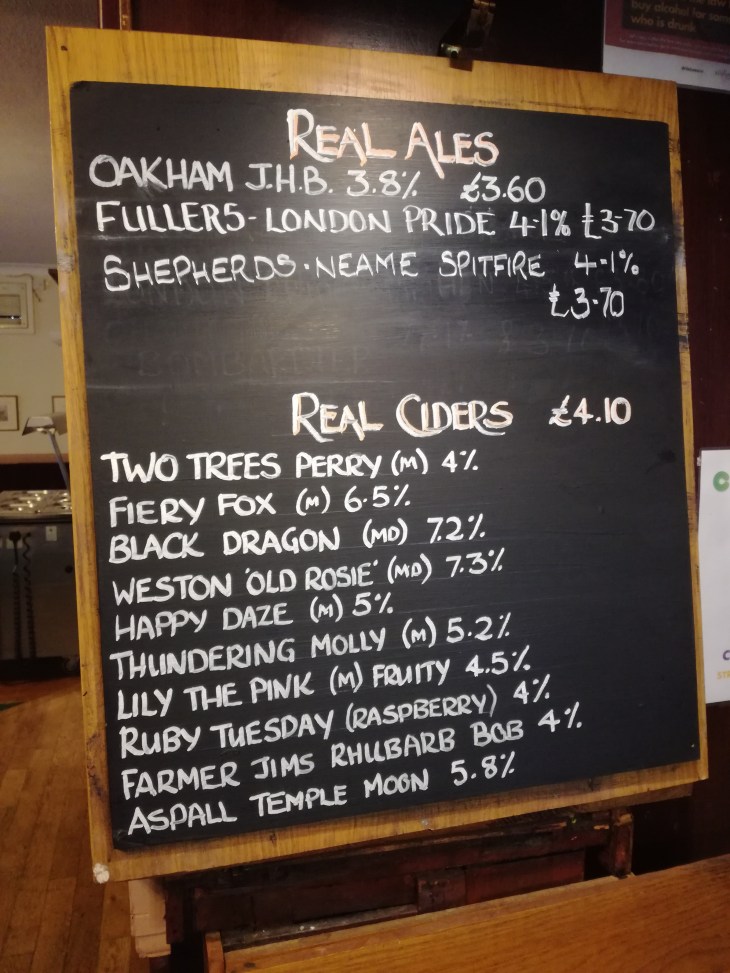 buy alcohol for som
who is drunk
REAL ALES
OAKHAM J.H.B. 3.8% £3.60
FULLERS-LONDON PRIDE 4.1% £3.70
SHEPHERDS.NEAME SPITFIRE 4.1%
£3.70
REAL CIDERS £4.10
TWO TREES PERRY (M) 4%
FIERY FOX (M) 6.5%
BLACK DRAGON (MD) 7.2%
WESTON 'OLD ROSIE' (MD) 7.3%
HAPPY DAZE (M) 5%
THUNDERING MOLLY (M) 5.2%
LILY THE PINK (M) FRUITY 4.5%
RUBY TUESDAY (RASPBERRY) 4%
FARMER JIMS RHUBARB BOB 4%
ASPALL TEMPLE MOON 5.8%